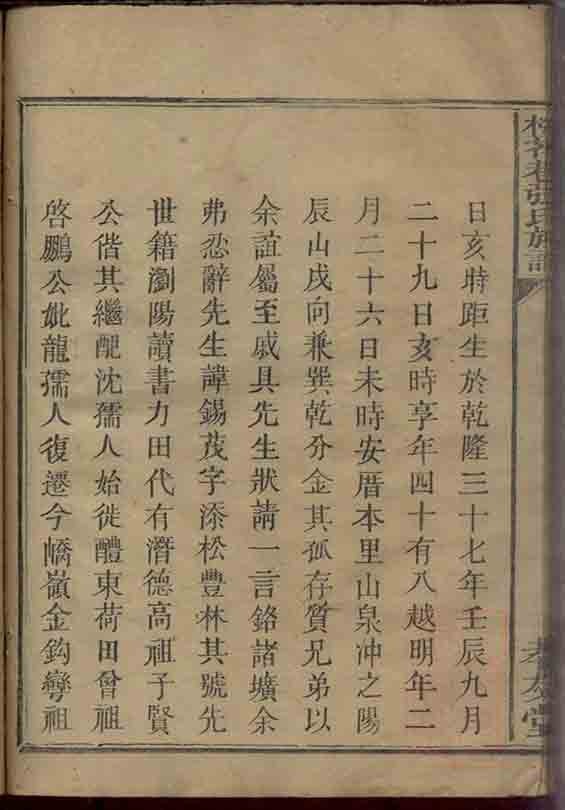 張氏族譜
孝友堂
日亥時距生於乾隆三十七年壬辰九月
二十九日亥時享年四十有八越明年二
月二十六日未時安厝本里山泉沖之陽
辰山戌向兼巽乾分金其孤存質兄弟以
余誼屬至戚具先生狀請一言銘諸壙余
弗忍辭先生諱錫茂字添松豐林其號先
世籍瀏陽讀書力田代有潛德高祖子賢
公偕其繼配沈孺人始徙醴東荷田曾祖
啓鵬公妣龍孺人復遷今嶠嶺金鈎彎祖